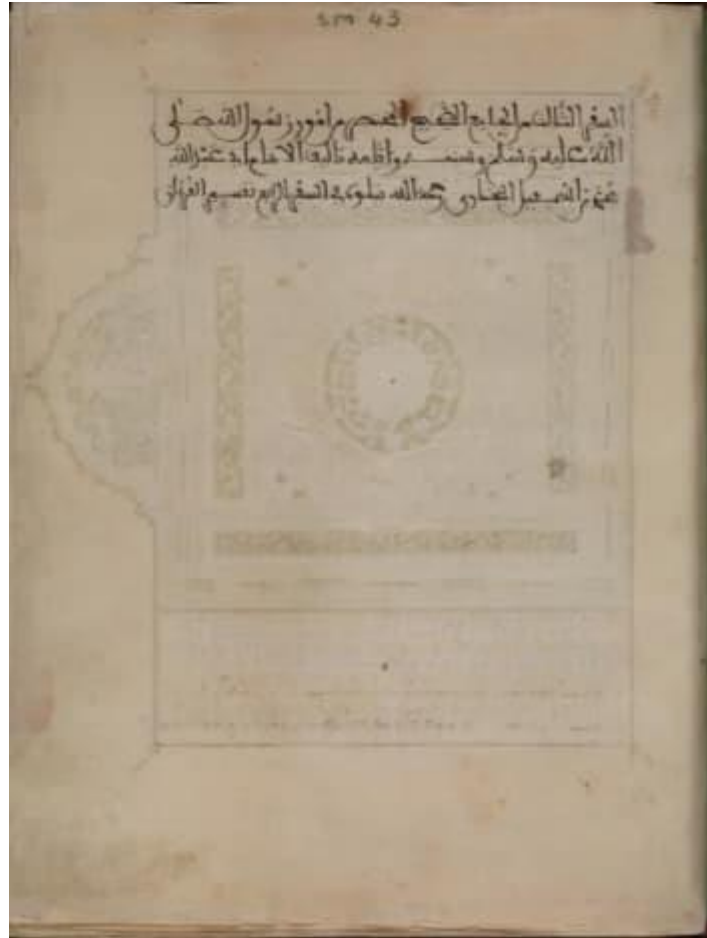 sm 43
السفر الثالث من الجامع الصحيح المختصر من امور رسول الله صلى
الله عليه وسلم وسننه وايامه تاليف الامام ابي عبد الله
محمد بن اسمعيل البخاري رحمه الله يتلوه في السفر الرابع تفسير القرءان